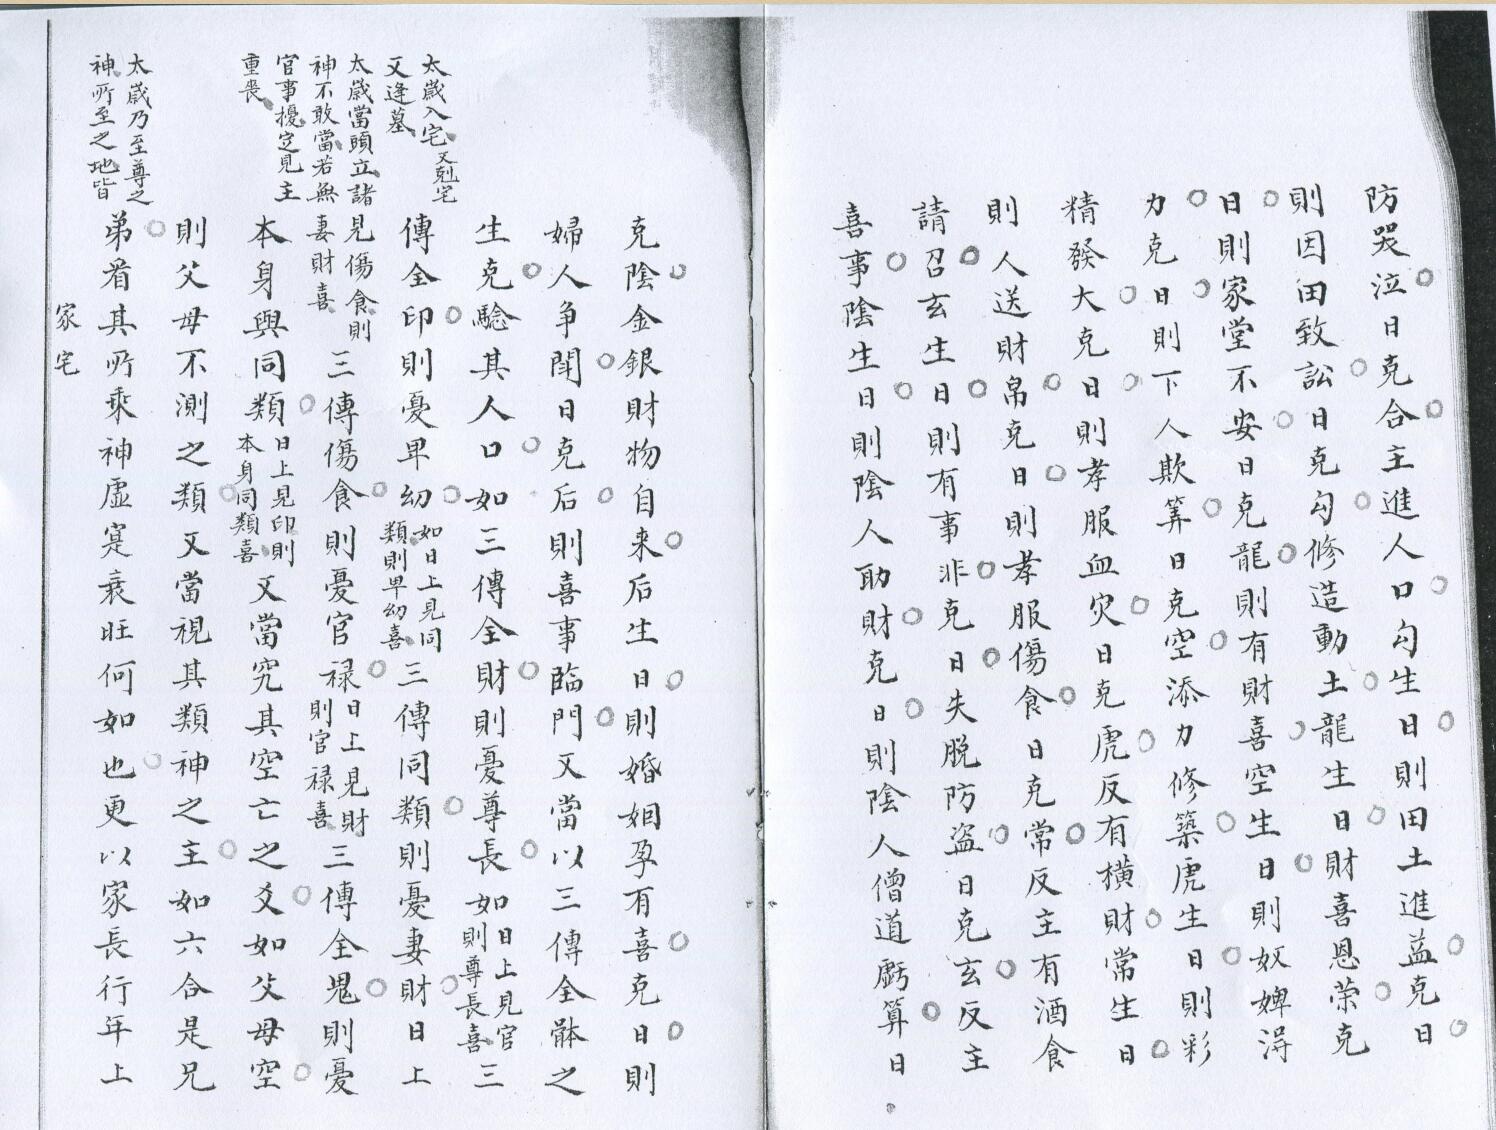 防哭泣日克合主進人口勾生日則田土進益克日
則因田致訟日克勾修造動土龍生日財喜恩荣克
日則家堂不安日克龍則有財喜空生日則奴婢淂
力克日則下人欺筭日克空添力修築虎生日則彩
精發大克日則孝服血灾日克虎反有横財常生日
則人送財帛克日則孝服傷食日克常反主有酒食
請召玄生日則有事非克日失脱防盗日克玄反主
喜事陰生日則陰人助財克日則陰人僧道虧算日
克陰金銀財物自来后生日則婚姻孕有喜克日則
婦人争鬧日克后則喜事臨門又當以三傳全骵之
生克驗其人口如三傳全財則憂尊長如日上見官則尊長喜三
傳全印則憂卑幼如日上見同類則卑幼喜三傳同類則憂妻財日上
見傷食則妻財喜三傳傷食則憂官禄日上見財則官禄喜三傳全鬼則憂
本身與同類日上見印則本身同類喜又當究其空亡之爻如父母空
則父母不測之類又當視其類神之主如六合是兄
弟看其所乘神虚寔衰旺何如也更以家長行年上
太歲入宅又剋宅
又逢墓
太歲當頭立諸
神不敢當若無
官事擾定見主
重喪
太歲乃至尊之
神所至之地皆
家宅